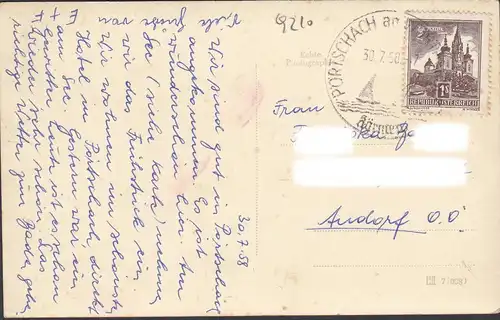 9210
30.7.58
Wir sind gut in Pörtschach
angekommen. Es ist
wunderschön hier. Am
See (siehe Karte) nehmen
wir das Frühstück ein.
Wir wohnen im schönsten
Hotel in Pörtschach direkt
am See. Gestern war ein
Gewitter, heute ist es schon
wieder sehr schön. Das
richtige Wetter zum Baden gehn.
Viele Grüße von
PÖRTSCHACH am
30.7.58
Kärnten
REPUBLIK ÖSTERREICH
1S
Frau
Andorf O.Ö.